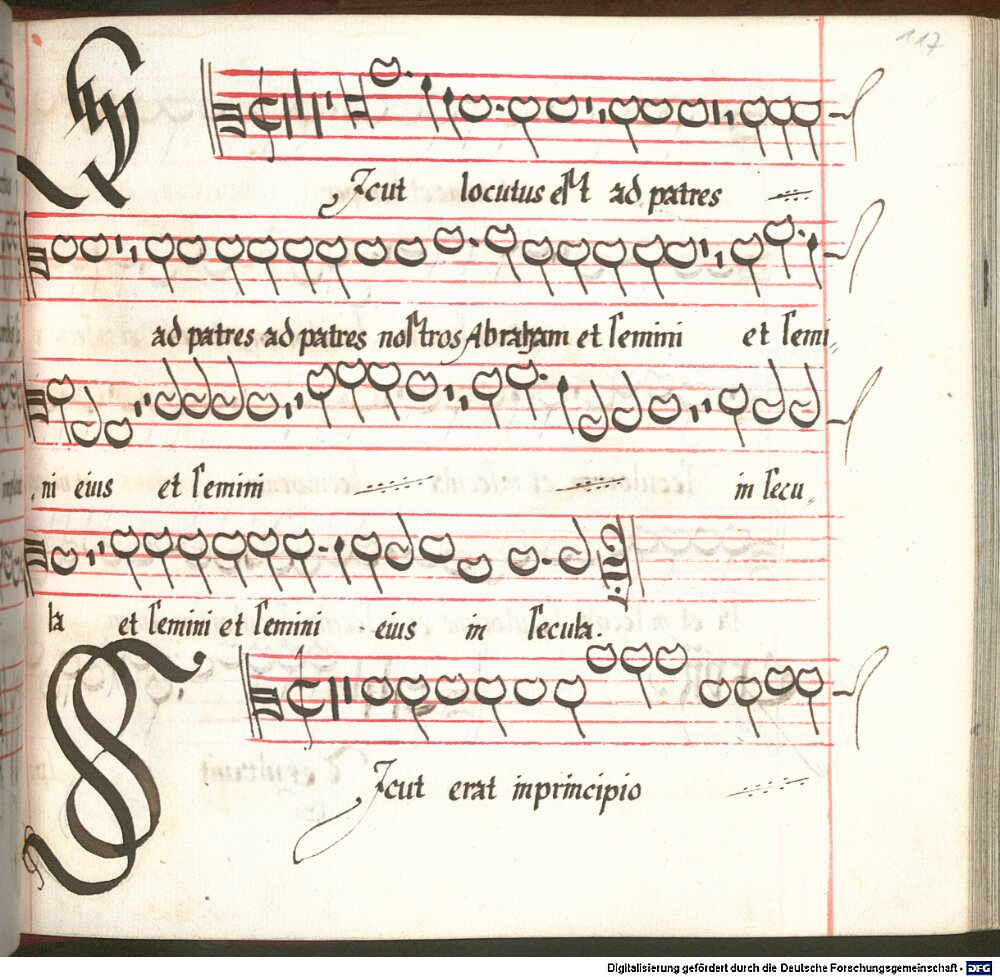 117
Sicut locutus est ad patres
ad patres ad patres nostros Abraham et semini et semi,,
,,ni eius et semini in secu,,
la et semini et semini eius in secula.
Sicut erat in principio
Digitalisierung gefördert durch die Deutsche Forschungsgemeinschaft - DFG